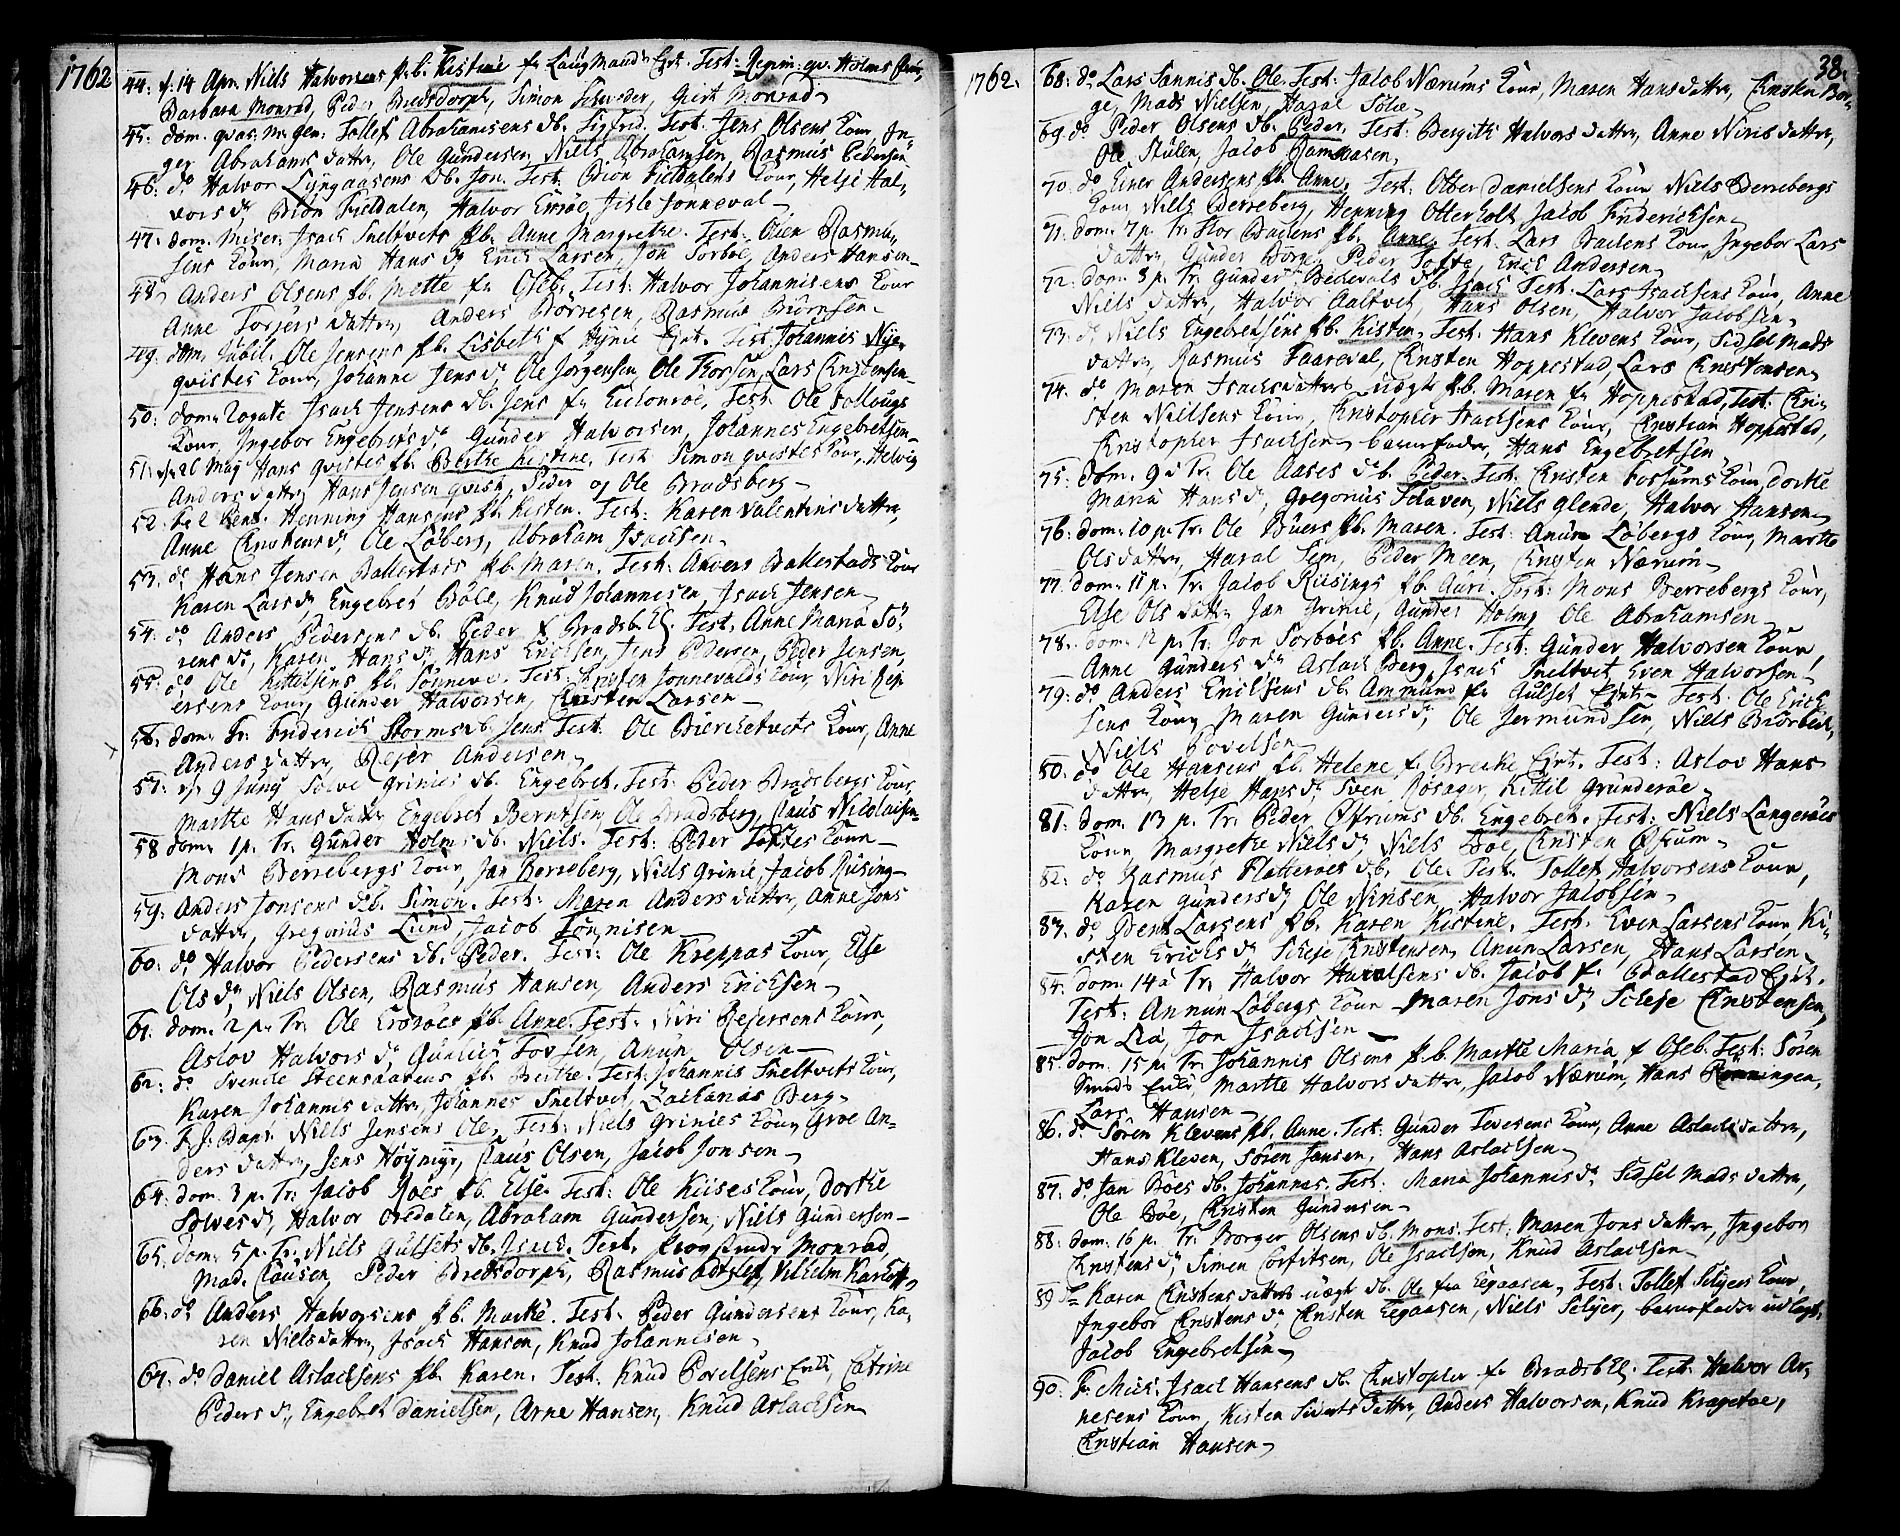 1762
44. d. 14 Apr. Niels Halvorsens pb. Kistine fr Laugmands Ejd. Test: Regim. qv. Holms
Barbara Monrad, Peder Bredsdorph, Simon Schrøder, Giert Monrad
45. dom. quas. m. gen: Tollef Abrahamsens db. Sigfred. Test. Jens Olsens kone, In-
ger Abrahams datter, Ole Gundersen, Niels Abrahamsen, Rasmus Pedersen
46. do Halvor Lyngaasens db. Jon. Test: Brion Fieldalens kone, Helje Hal-
vors dr. Biøn Fieldalen, Halvor Ensøe, Jisle Jonneval
47. dom. Miser: Isach Sneltvets pb. Anne Margrethe. Test: Olien Rasmu-
sens kone, Maria Hans dr. Erich Larsen, Jon Sorboe, Anders Hansen
48. Anders Olsens pb. Mette fr Oseb. Test: Halvor Johannisens kone
Anne Torgers datter, Anders Børresen, Rasmus Biørnsen
49. dom. Jubil. Ole Jensens pb. Lisbeth f Hynie Ejnt. Test: Johannis Nye-
qvistes kone, Johanne Jens dr. Ole Jørgensen, Ole Thorsen, Lars Christensen
50. dom. Rogate Isach Jensens db. Jens fr Eichonroe, Test: Ole Follougs
kone, Ingebor Engebrets dr. Gunder Halvorsen, Johannes Engebretsen
51. d. 26 May Hans qvistes pb. Berthe Kistine. Test Simon qvistes kone, Helvig
Anders datter Hans Jensen qvist, Peder og Ole Bradsberg
52. fer 2 Pent. Henning Hansens pb. Kisten. Test: Karen Valentins datter,
Anne Christens dr. Ole Løberg, Abraham Isachsen
53. do Hans Jensen Ballestads pb. Maren. Test: Anders Ballestads kone
Karen Lars dr. Engebret Bøle, Knud Johannesen, Isach Jensen
54. do Anders Pedersens db. Peder f Bradsb. Ej. Test. Anne Maria Sø-
rens dr, Karen Hans dr. Hans Erichsen, Jens Pedersen, Peder Jensen,
55. do Ole Kittilsens pb. Sonneve. Test: Christen Jonnevalds kone, Niri Rej-
ersens kone, Gunder Halvorsen, Christen Larsen
56. dom. Tr. Friderich Storms db. Jens. Test: Ole Bierchetvets kone, Anne
Anders datter, Rejer Andersen
57. d. 9 Juny Solve Grinies db. Engebret. Test: Peder Bradsbergs kone,
Marthe Hans datter Engebret Berntsen, Ole Bradsberg, Claus Nicolaisen
58 dom. 1 p. Tr. Gunder Holms db. Niels. Test: Peder Toftes kone
Mons Berrebergs kone, Jan Berreberg, Niels Grinie, Jacob Rising
59. Anders Jonsens db. Simon. Test: Maren Anders datter, Anne Jons
datter, Gregorius Lund, Jacob Tønnisen
60. do Halvor Pedersens db. Peder. Test: Ole Kreppas kone, Else
Ols dr. Niels Olsen, Rasmus Hansen, Anders Erichsen
61. dom. 2 p. Tr. Ole Erøsøes pb. Anne. Test: Niri Rejersens kone,
Aslov Halvors dr. Gunlich Tovsen, Anun Olsen
62. do Svenche Steensaasens pb. Berthe. Test: Johannis Sneltvets kone,
Karen Johannis datter, Johannes Sneltvet, Zacharias Berg
63. F. J. Bapt. Niels Jensens Ole. Test: Niels Grinies kone, Groe An-
ders datter, Jens Høymyr, Claus Olsen, Jacob Jonsen
64. dom. 3 p. Tr. Jacob Roes pb. Else. Test: Ole Kiises kone, Dorthe
Solves dr, Halvor Oredalen, Abraham Gundersen, Niels Gundersen
65. dom. 5 p. Tr. Niels Gulsets db. Isach. Test. Monrad,
Mad. Clausen, Peder Bredsdorph, Rasmus Adtslef, Vilhelm Karhoff
66. do Anders Halvorsens pb. Marthe. Test: Peder Gundersens kone, Ka-
ren Niels datter, Isach Hansen, Knud Johannesen
67. do Daniel Aslachsens pb. Karen. Test. Knud Povelsens Enke, Catrine
Peders dr, Engebret Danielsen, Arne Hansen, Knud Aslachsen
1762. 38.
68. do Lars Sannis db. Ole. Test: Jacob Nærums kone, Maren Hans datter, Christen Bor-
ge, Mads Nielsen, Haral Solie
69. do Peder Olsens db. Peder. Test: Bergith Halvors datter, Anne Niris datter,
Ole Stulen, Jacob Ramsaasen,
70. do Einer Andersens pb. Anne. Test: Otter Danielsens kone Niels Berrebergs
kone Niels Berreberg, Henning Otterholt Jacob Friderichsen
71. dom. 7 p. Tr. Hor Bachens pb. Anne. Test: Lars Bachens kone Ingebor Lars
datter, Gunder Børne Peder Tofte, Erich Andersen
72. dom. 8 p. Tr. Gunder Bechevals db. Isach Test. Lars Isachsens kone, Anne
Niels datter, Halvor Aaltvet, Hans Olsen, Halvor Jacobsen
73. do Niels Engebretsens pb. Kisten. Test: Hans Klevens kone, Sidsel Mads
datter, Rasmus Faareval, Christen Hoppestad, Lars Christensen
74. do Maren Isachsdatters uægt pb. Maren fr Hoppestad, Test: Chri-
sten Nielsens kone, Christopher Isachsens kone, Christian Hoppestad,
Christopher Isachsen, barnefader, Hans Engebretsen
75. dom. 9 p. Tr. Ole Aases db. Peder. Test: Christen Fossums kone, Dorthe
Maria Hans dr. Gregorius Skaven, Niels Glende, Halvor Hansen
76. dom. 10 p. Tr. Ole Buers pb. Maren. Test: Anun Løbergs kone, Marthe
Ols datter, Haral Sem, Peder Meen, Christen Nærum
77. dom. 11 p. Tr. Jacob Riisings pb. Guri. Test: Mons Berrebergs kone,
Else Ols datter Jan Grinie, Gunder Holm, Ole Abrahamsen
78. dom. 12 p. Tr. Jon Sorboes pb. Anne. Test: Gunder Halvorsen kone,
Anne Gunders dr. Aslach Berg, Isach Sneltvet, Even Halvorsen
79. do Anders Erichsens db. Ammund fr Gulset Ejnt. Test: Ole Erich-
sens kone, Maren Gunders dr, Ole Jermundsen, Niels Biørbech,
Niels Povelsen
80. do Ole Hansens pb. Helene f. Breche Ejnt. Test: Aslov Hans
datter, Helje Hans dr. Sven Røsager, Kittil Grunderøe
81. dom. 13 p. Tr. Peder Øfrums db. Engebret. Test: Niels Langerøes
kone, Margrethe Niels dr. Niels Boe, Christen Øfrum
82. do Rasmus Flatterøes db. Ole. Test. Tollef Halvorsens kone,
Karen Gunders dr. Ole Nirisen, Halvor Jacobsen
83. do Bent Larsens pb. Karen Kistine. Test: Even Larsens kone Ki-
sten Erichs dr. Scheje Christensen, Anun Larsen, Hans Larsen
84. dom. 14 a Tr. Halvor Haralsens db. Jacob f. Ballestad Ejnt.
Test: Annun Løbergs kone Maren Jons dr. Scheje Christensen,
Jon Lia, Jon Isachsen
85. dom. 15 p. Tr. Johannis Olsens p.b. Marthe Maria f Oseb. Test: Søren
Smeds Enke, Marthe Halvors datter, Jacob Nærum, Hans Rønningen,
Lars Hansen
86. do Søren Klevens pb. Anne. Test: Gunder Tevesens kone, Anne Aslachs datter,
Hans Kleven, Søren Jansen, Hans Aslachsen
87. do Jan Bøes db. Johannes. Test: Maria Johannis dr. Sidsel Mads datter,
Ole Bøe, Christen Gundersen
88. dom. 16 p. Tr. Borger Olsens db. Mons. Test: Maren Jons datter, Ingebor
Christens dr, Simen Corfitsen, Ole Isachsen, Knud Aslachsen
89 do Karen Christens datters uægt db. Ole fra Eegaasen, Test: Tollef Seljers kone,
Ingebor Christens dr. Christen Eegaasen, Niels Seljer, barnefader udlagt,
Jacob Engebretsen
90. F. Mich: Isach Hansens db. Christopher fr Bradsb. Ej. Test: Halvor Ar-
nesens kone, Kisten Siverts datter, Anders Halvorsen, Knud Kragetoe,
Christian Hansen